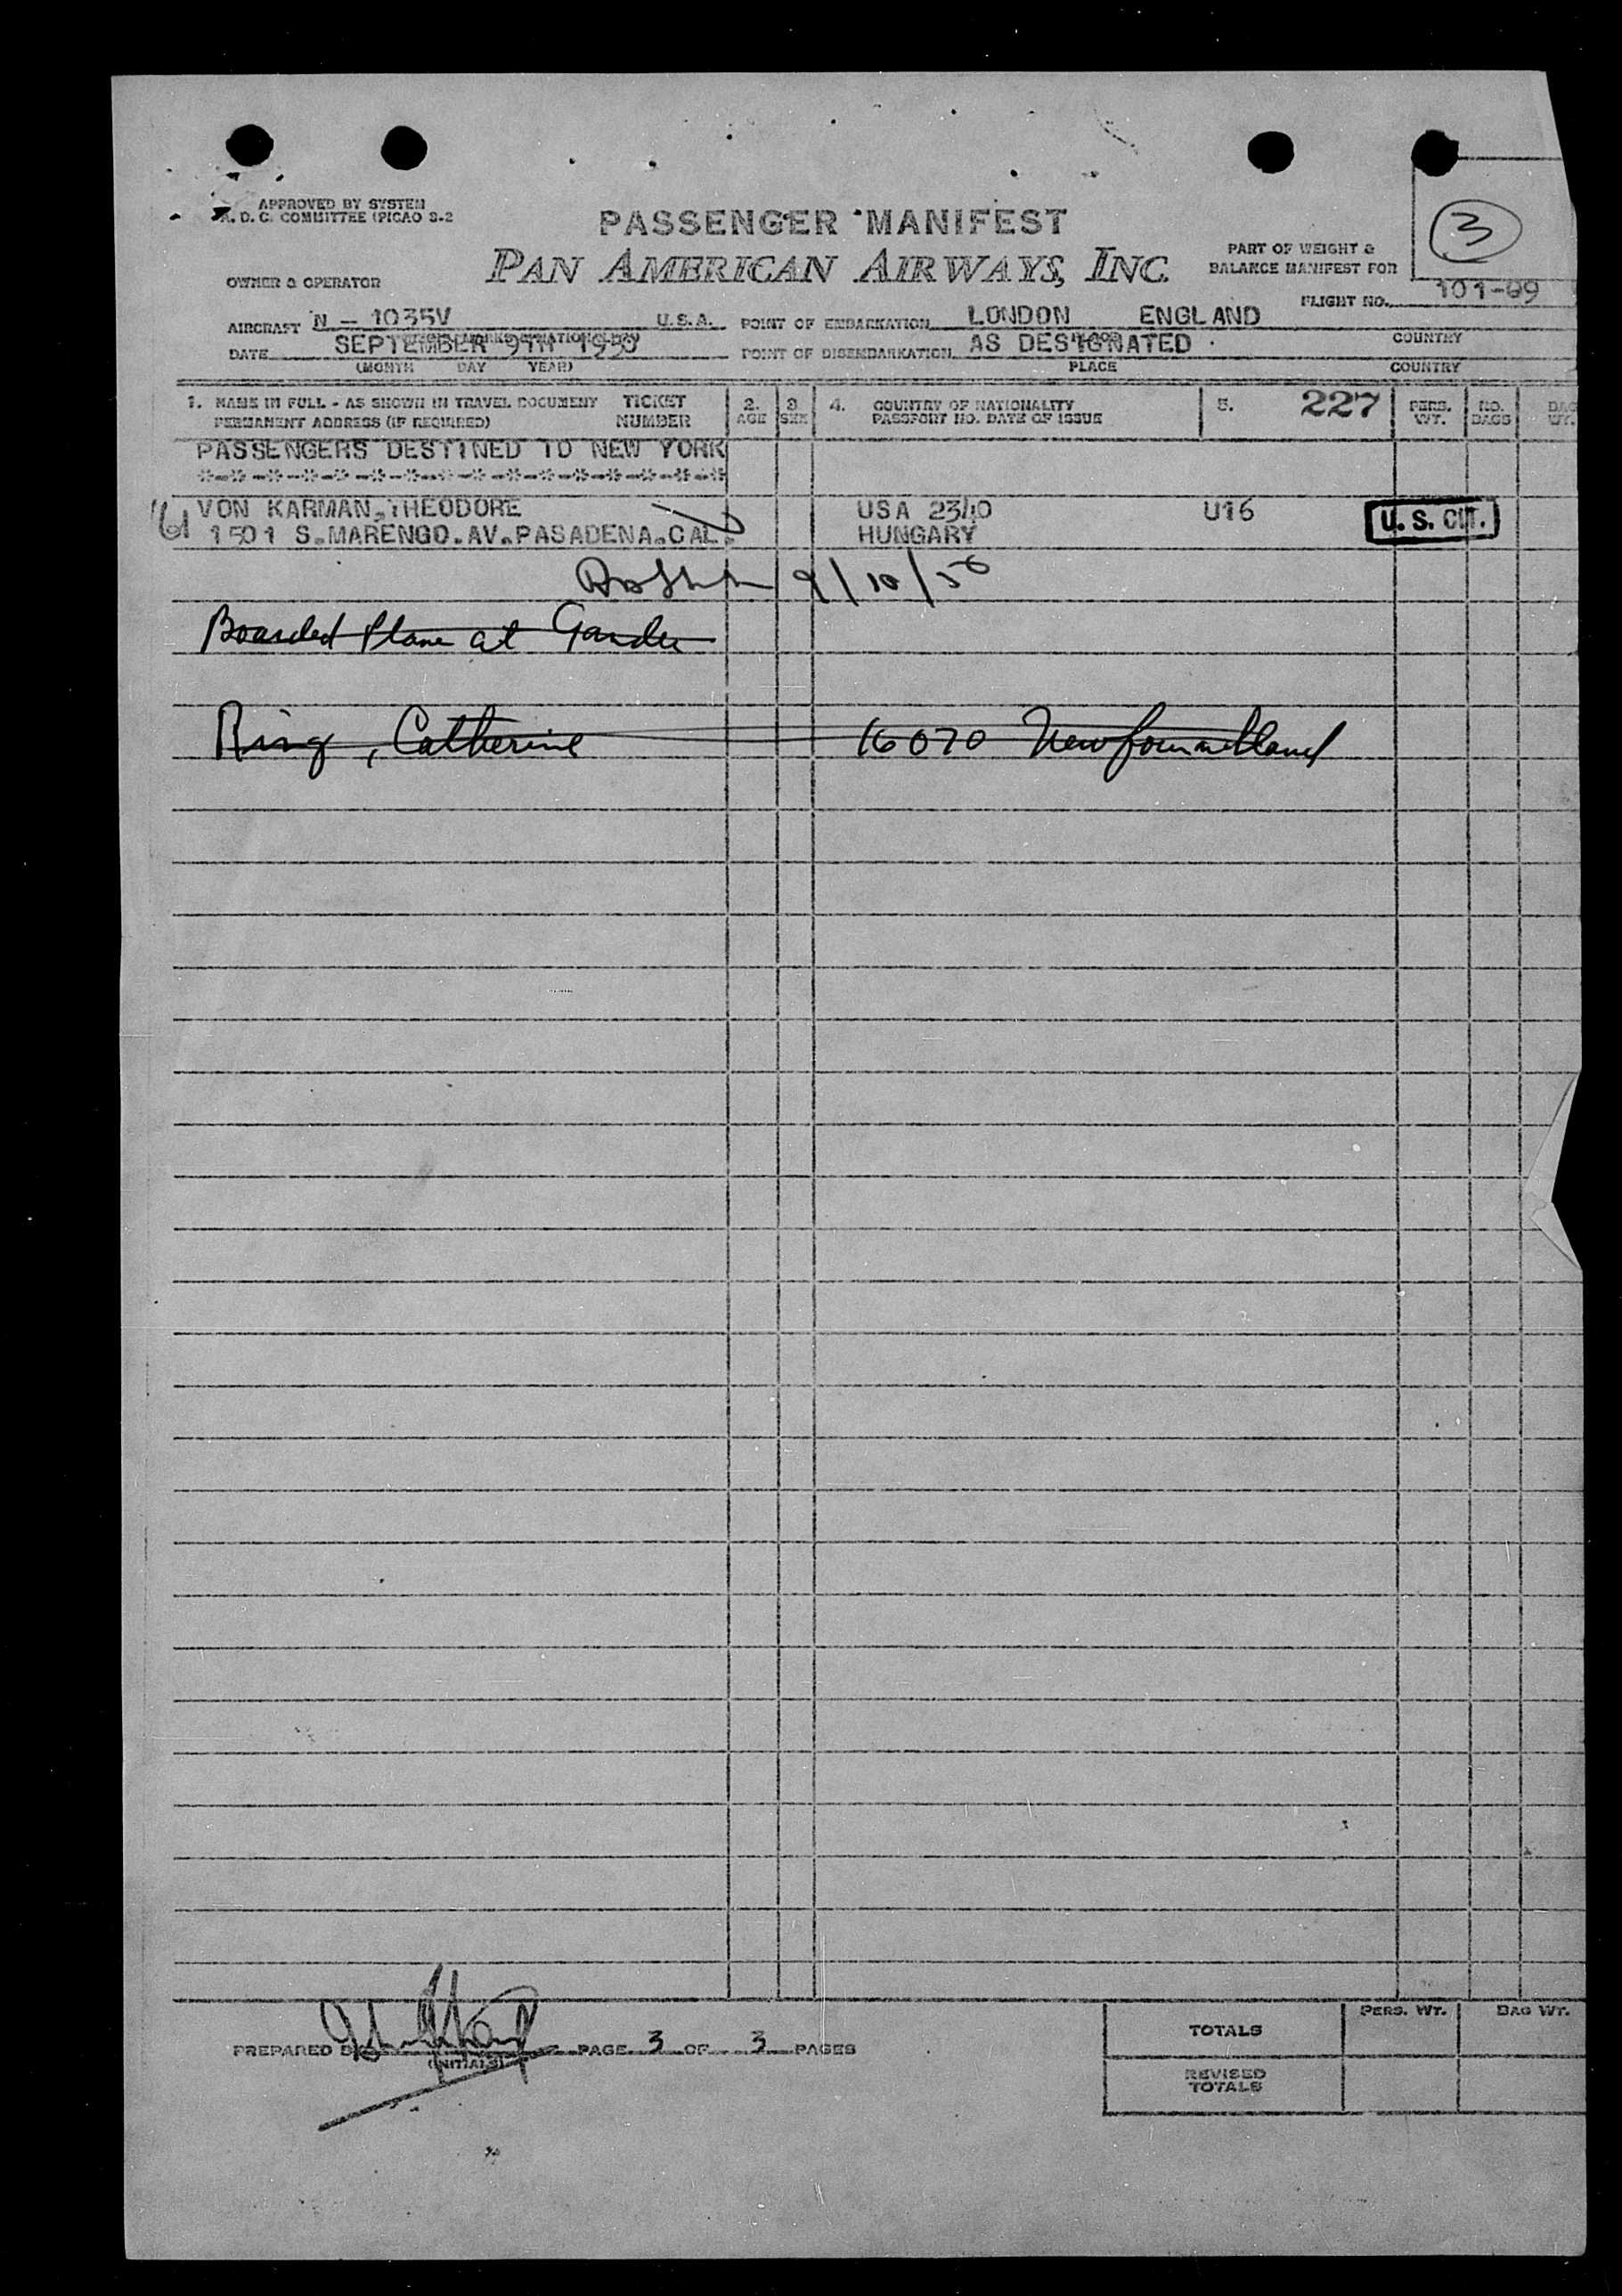 APPROVED BY SYSTEM
A. D. C. COMMITTEE (PICAO S-2
PASSENGER MANIFEST
PAN AMERICAN AIRWAYS, INC.
3
OWNER & OPERATOR
PART OF WEIGHT &
BALANCE MANIFEST FOR
FLIGHT NO. 101-09
AIRCRAFT N - 1035V U.S.A. POINT OF EMBARKATION LONDON ENGLAND
COUNTRY
DATE SEPTEMBER 9TH 1950 POINT OF DISEMBARKATION AS DESIGNATED
(MONTH DAY YEAR) PLACE COUNTRY
1. NAME IN FULL - AS SHOWN IN TRAVEL DOCUMENT TICKET 2. 3 4. COUNTRY OF NATIONALITY 5. 227 PERS. NO. BAG
PERMANENT ADDRESS (IF REQUIRED) NUMBER AGE SEX PASSPORT NO. DATE OF ISSUE WT. BAGS WT.
PASSENGERS DESTINED TO NEW YORK
*-*-*-*-*-*-*-*-*-*-*-*-*-*-*-*
VON KARMAN,THEODORE USA 23/10 U16 U. S. CIT.
1501 S.MARENGO.AV.PASADENA.CAL. HUNGARY
9/10/50
Boarded Plane at Gander
Ring, Catherine 16070 Newfoundland
PREPARED BY PAGE 3 OF 3 PAGES
(INITIALS)
TOTALS PERS. WT. BAG WT.
REVISED
TOTALS